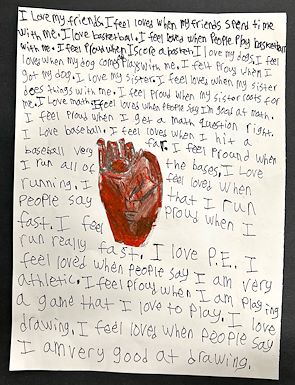 I Love my friends. I feel loves when my friends spend time
with me. I love basketball. I feel loves when People Play basketball
with me. I feel Proud when I score a basket. I love my dog. I feel
loves when my dog comes Plays with me. I felt Proud when I
got my dog. I love my sister. I feel loves when my sister
does things with me. I feel Proud when my sister roots for
me. I Love math. I feel loves when People say I'm good at math.
I feel Proud when I get a math question right.
I Love baseball. I feel loves when I hit a
baseball very far. I feel Pround when
I run all of the bases. I Love
running. I feel loved when
People say that I run
fast. I feel Proud when I
run really fast. I love P.E. I
feel loved when people say I am very
athletic. I feel proud when I am playing
a game that I love to Play. I love
drawing. I feel loves when People say
I am very good at drawing.